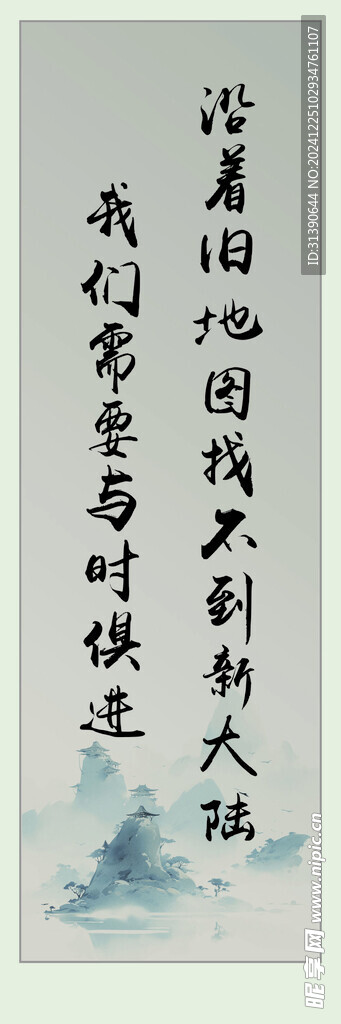 沿着旧地图找不到新大陆
我们需要与时俱进
ID:31390644 NO:20241225102934761107
昵享网 www.nipic.cn